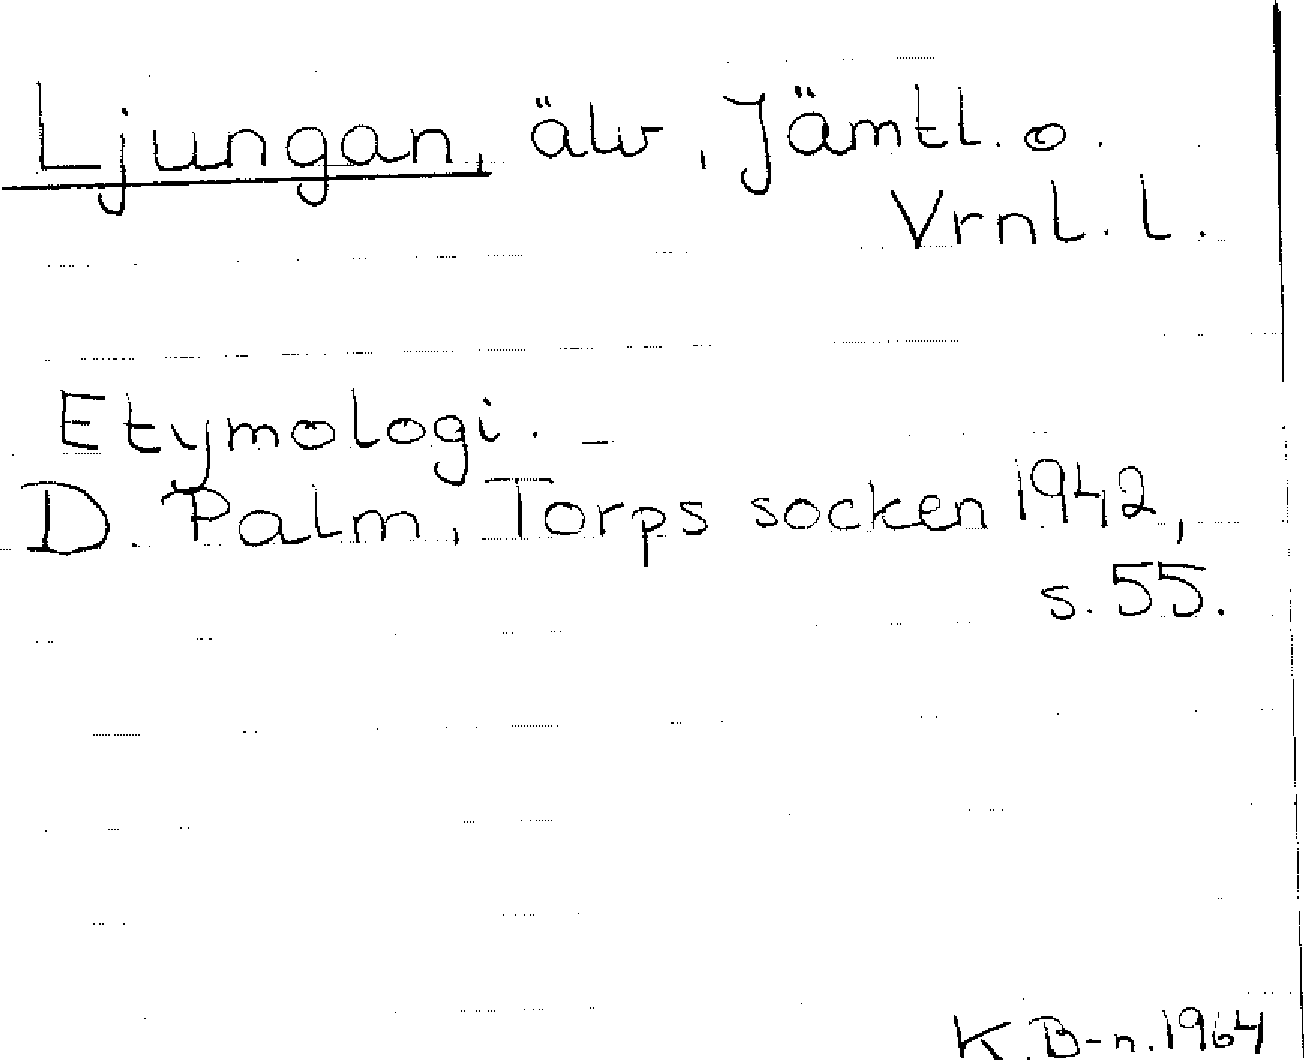 Ljungan, älv, Jämtl. o.
Vrnl. l.
Etymologi. –
D. Palm, Torps socken 1942,
s. 55.
K. B-n. 1964